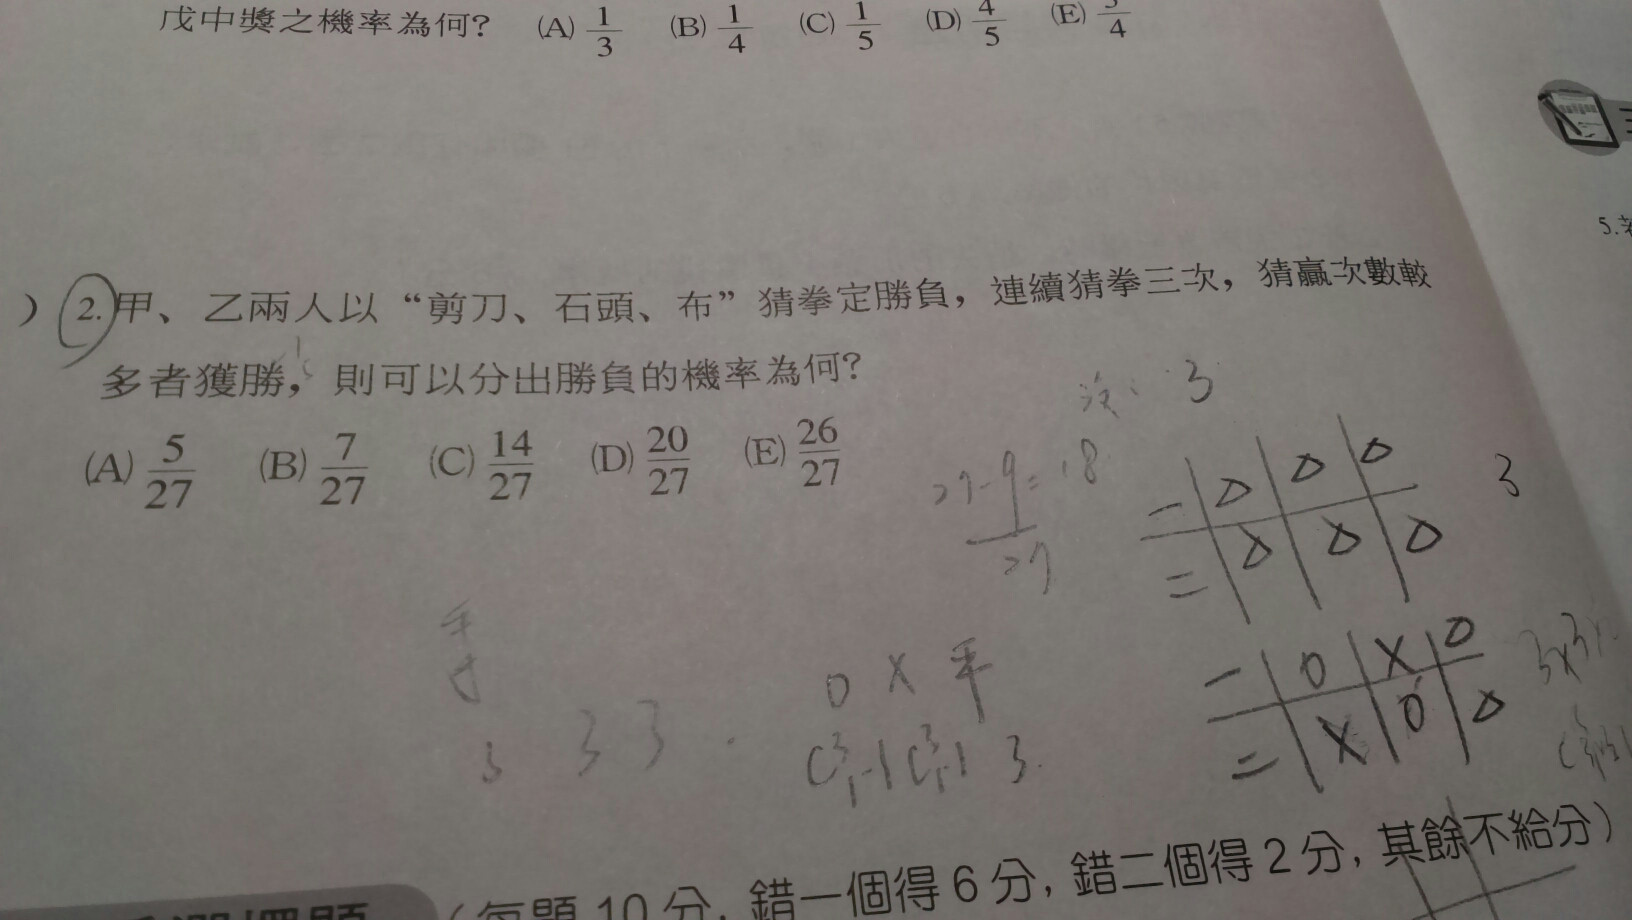 戊中獎之機率為何? (A) 1/3 (B) 1/4 (C) 1/5 (D) 4/5 (E) 3/4
5.若
) 2.甲、乙兩人以“剪刀、石頭、布”猜拳定勝負，連續猜拳三次，猜贏次數較
多者獲勝，則可以分出勝負的機率為何?
(A) 5/27 (B) 7/27 (C) 14/27 (D) 20/27 (E) 26/27
3
27-9=18
27
一 △ △ △ 3
二 △ △ △
平
3 3 3
O X 平
C³₁-1 C³₁-1 3
一 O X △
二 X O △
(每題 10 分, 錯一個得 6 分, 錯二個得 2 分, 其餘不給分)